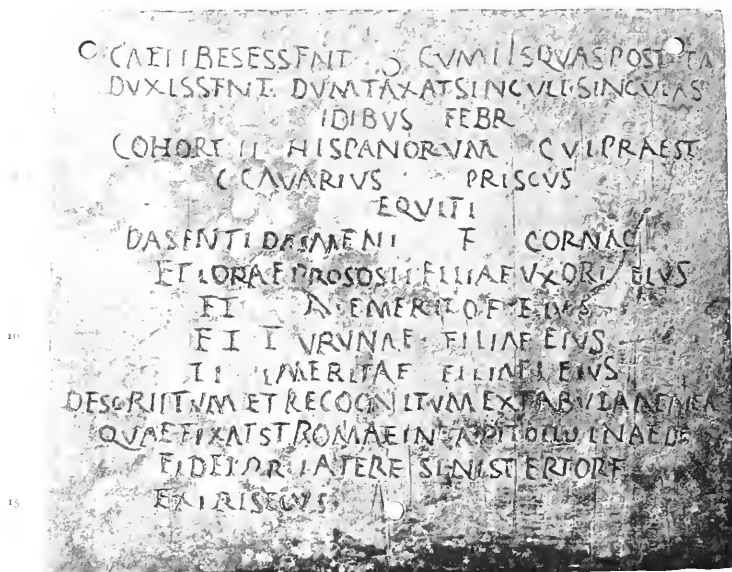 CAELIBESESSENT CVMIISQVASPOSTEA
DVXISSENT DVMTAXATSINGVLI SINGVLAS
IDIBVS FEBR
COHORT II HISPANORVM CVI PRAEST
C CAVARIVS PRISCVS
EQVITI
DASENTI DASMENI F CORNAC
ET IORAE PROSOSII FILIAE VXORI EIVS
ET EMERITO F EIVS
ET TVRVNAE FILIAE EIVS
ET EMERITAE FILIAE EIVS
DESCRIPTVM ET RECOGNITVM EX TABVLA AENEA
QVAE FIXA EST ROMAE IN CAPITOLIO IN AEDE
FIDEI LATERE SINISTERIORE
10
15